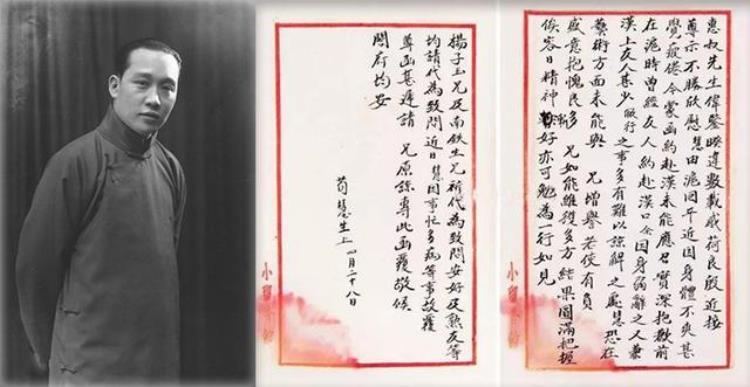 惠叔先生偉鑒睽違數載感荷良殷近接
尊示不勝欣慰慧由滬回平近因身體不爽甚
覺疲倦今蒙函約赴漢未能應召實深抱歉前
在滬時曾經友人約赴漢口金因身弱辭之人兼
漢上友人甚少 旅行之事多有難以諒解之處慧恐在
藝術方面未能與 兄增譽若使有負
盛意抱愧良多 兄如能維持多方結果圓滿把握
俟容日精神 好亦可勉為一行如見
楊子玉兄及南鐵生兄祈代為致問安好及熟友等
均請代為致問近日慧因事忙多病等事故覆
尊函甚遲請 兄原諒專此函覆敬候
閤府均安
荀慧生上 四月二十八日